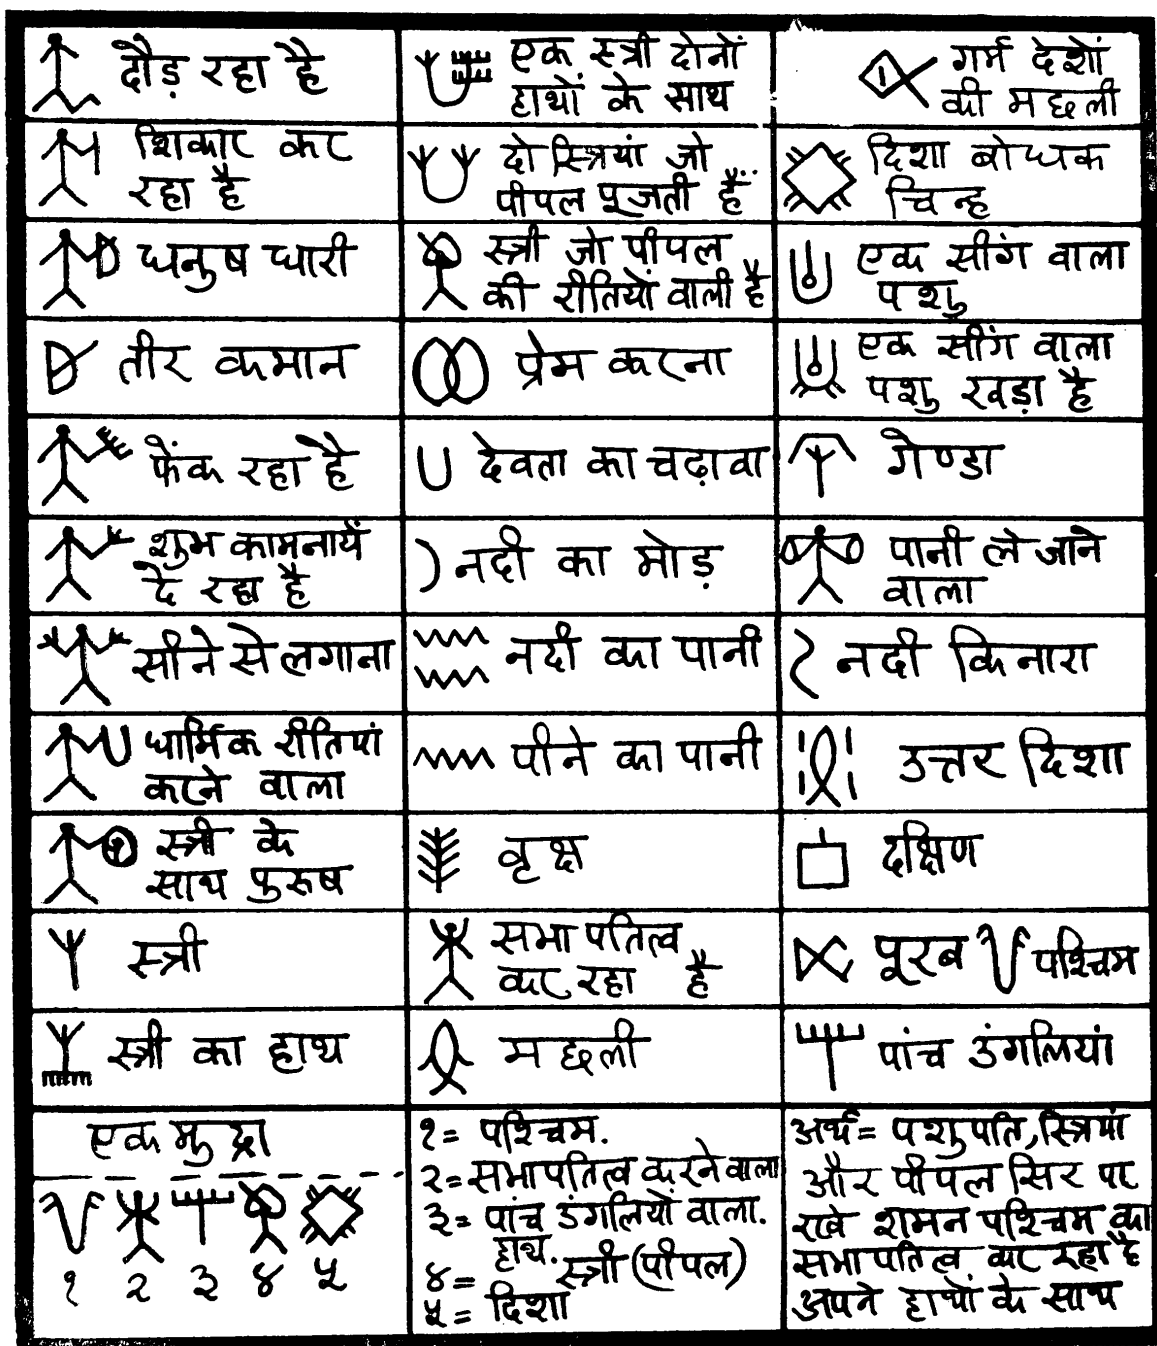 दौड़ रहा है
एक स्त्री दोनों
हाथों के साथ
गर्म देशों
की मछली
शिकार कर
रहा है
दो स्त्रियां जो
पीपल पूजती हैं
दिशा बोधक
चिन्ह
धनुष धारी
स्त्री जो पीपल
की रीतियों वाली है
एक सींग वाला
पशु
तीर कमान
प्रेम करना
एक सींग वाला
पशु खड़ा है
फेंक रहा है
देवता का चढ़ावा
गेण्डा
शुभ कामनायें
दे रहा है
नदी का मोड़
पानी ले जाने
वाला
सीने से लगाना
नदी का पानी
नदी किनारा
धार्मिक रीतियां
करने वाला
पीने का पानी
उत्तर दिशा
स्त्री के
साथ पुरुष
वृक्ष
दक्षिण
स्त्री
सभापतित्व
कर रहा है
पूरब पश्चिम
स्त्री का हाथ
मछली
पांच उंगलियां
एक मुद्रा
१ २ ३ ४ ५
१= पश्चिम.
२= सभापतित्व करने वाला
३= पांच उंगलियों वाला.
हाथ.
४= स्त्री (पीपल)
५= दिशा
अर्थ= पशुपति, स्त्रियां
और पीपल सिर पर
रखे शमन पश्चिम का
सभापतित्व कर रहा है
अपने हाथों के साथ